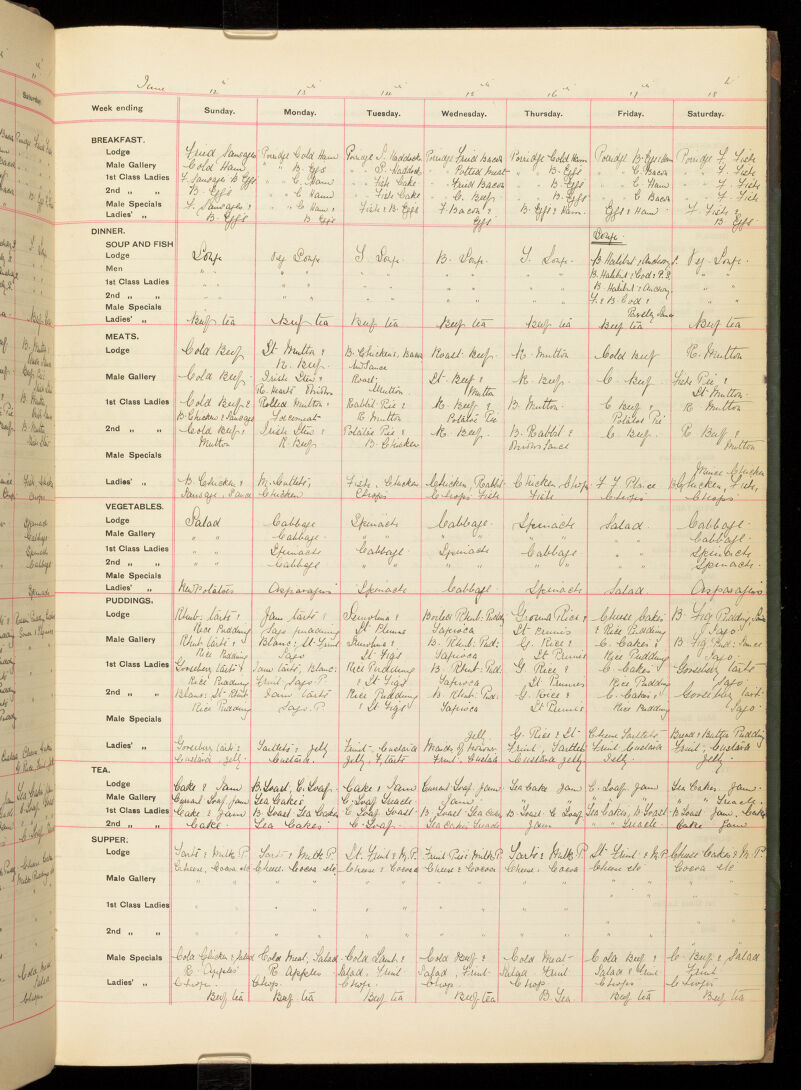 June 12th 13th 14th 15th 16th 17th 18
Week ending Sunday. Monday. Tuesday. Wednesday. Thursday. Friday. Saturday.
BREAKFAST.
Lodge Fried Sausages Porridge Cold Ham Porridge S. Haddock Porridge Fried Bacon Porridge Cold Ham Porridge B. Eggs & Ham Porridge F. Fish
Male Gallery Cold Ham " " B. Eggs " " S. Haddock " " Potted Meat " " B. Eggs " " C. Bacon " " F. Fish
1st Class Ladies F. Sausages B Eggs " " C. Ham " " Fish Cake " " Fried Bacon " " B. Eggs " " C. Ham " " F. Fish
2nd " " B. Eggs " " C Ham " " Fish Cake " " C. Beef " " B. Eggs " " C Bacon " " F. Fish
Male Specials F. Sausages & " " C Ham & Fish & B. Eggs F. Bacon & B. Eggs & Ham Eggs & Ham F. Fish &
Ladies' " B. Eggs B Eggs Eggs B Eggs
DINNER.
Soup
SOUP AND FISH
Lodge Soup Veg Soup T. Soup B. Soup T. Soup B Halibut & Anchovy S. Veg. Soup
Men " " " " " " " " " " B. Halibut & Cod & P.S. " "
1st Class Ladies " " " " " " " " " " B. Halibut & Anchovy " "
2nd " " " " " " " " " " " " F. & B. Cod & " "
Male Specials Parsley Sauce
Ladies' " Beef tea Beef tea Beef tea Beef tea Beef tea Beef tea Beef tea
MEATS.
Lodge Cold Beef St Mutton & B. Chickens, Bacon Roast Beef R. Mutton Cold Beef R. Mutton
R. Beef
Male Gallery Cold Beef Irish Stew & Roast St. Beef & R. Beef C. Beef Fish Pie &
R. Hearts Mutton Mutton St. Mutton
1st Class Ladies Cold Beef & Rolled Mutton & Rabbit Pie & R. Beef & B. Mutton C Beef & R Mutton
B Chicken & Sausage R Mutton Potatoe Pie Potatoe Pie
2nd " " Cold Beef & Irish Stew & Potatoe Pie & R. Beef B. Rabbit & C. Beef R Beef &
Mutton R. Beef B. Chicken Onion Sauce Mutton
Male Specials
Mince Chicken
Ladies' " B. Chicken & M. Cutlets, Fish, Chicken Chicken, Rabbit Chicken Chops F F Plaice B Chicken, Fish,
Sausage Chicken Chops Chops Fish Fish Chops Chops
VEGETABLES.
Lodge Salad Cabbage Spinach Cabbage Spinach Salad Cabbage
Male Gallery " " Cabbage " " " " " " Cabbage
1st Class Ladies " " Spinach Cabbage Spinach Cabbage " " Spinach
2nd " " " " Cabbage " " " " " " " " Spinach
Male Specials
Ladies' " New Potatoes Asparagus Spinach Cabbage Spinach Salad Asparagus
PUDDINGS.
Lodge Rhub: tarts & Jam tarts & Semolina & Boiled Rhub: Pudding Ground Rice & Cheese Cakes B. Fig Pudding
Rice Pudding Sago pudding St Prunes Tapioca St Prunes & Rice Pudding Sago
Male Gallery Rhub tarts & Blanc: St Fruit Semolina & B. Rhub: Pud: G. Rice & C. Cakes & B Fig Pud: Sauce
Rice Pudding Sago St Figs Tapioca St Prunes Rice Pudding & Sago
1st Class Ladies Gooseberry tarts & Jam tarts, Blanc: Rice Pudding B. Rhub. Pud. G. Rice & C. Cakes Gooseberry tarts
Rice Pudding Fruit, Sago P. & St Figs Tapioca St Prunes Rice Pudding Sago
2nd " " Blanc: St Rhub Jam tarts Rice Pudding B Rhub: Pud. G. Rice & C. Cakes & Gooseberry tart
Rice Pudding Sago. P. & St Figs Tapioca St Prunes Rice Pudding Sago
Male Specials
Jelly G. Rice & St Cheese Tartlets Bread & Butter Pudding
Ladies' " Gooseberry tarts & Tartlets & Jelly Fruit Custard Maids of Honour Fruit, Tartlets Fruit Custard Fruit, Custard
Custard Jelly Custard Jelly F. tarts Fruit, Custard Custard Jelly Jelly Jelly
TEA.
Lodge Cake & Jam B. Toast, C. Loaf Cake & Jam Currant Loaf, Jam Tea Cake Jam C. Loaf Jam Tea Cakes, Jam
Male Gallery Currant Loaf, Jam Tea Cakes C. Loaf Treacle Jam " " " " " Treacle
1st Class Ladies Cake & Jam B Toast Tea Cakes C. Loaf Toast B. Toast Tea Cakes B. Toast C Loaf Tea Cakes, B. Toast B Toast Jam, Cake
2nd " " Cake Tea Cakes C. Loaf Tea Cakes Treacle Jam " " Treacle Cake Jam
SUPPER.
Lodge Tarts & Milk P. Tarts & Milk P. St. Fruit & M.P. Fruit Pies Milk P. Tarts & Milk P. St Fruit & M.P. Cheese Cakes & M.P.
Cheese, Cocoa etc Cheese Cocoa etc Cheese & Cocoa Cheese & Cocoa Cheese, Cocoa Cheese etc Cocoa etc
Male Gallery " " " " " " " " " " " " " "
1st Class Ladies " " " " " " " " " " " " " "
2nd " " " " " " " " " " " " " " " "
Male Specials Cold Chicken & Salad Cold Meat, Salad Cold Lamb, & Cold Beef & Cold Meat Cold Beef & C. Beef & Salad
R. Apples R Apples Salad, Fruit Salad, Fruit Salad Fruit Salad & Fruit Fruit
Ladies' " Chops Chops Chops Chops Chops Chops Chops
Beef tea Beef tea Beef tea Beef tea B. Tea Beef tea Beef tea